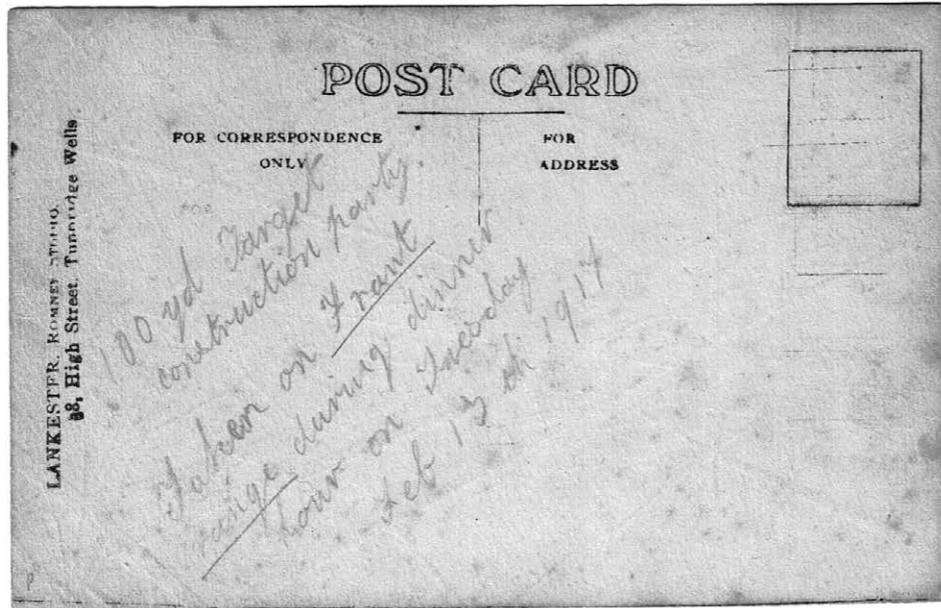 POST CARD
FOR CORRESPONDENCE
ONLY
FOR
ADDRESS
LANKESTER, ROMNEY STUDIO,
38, High Street, Tunbridge Wells
100 yd Target
construction party.
Taken on Frant
range during dinner
hour on Tuesday
Feb 13th 1917